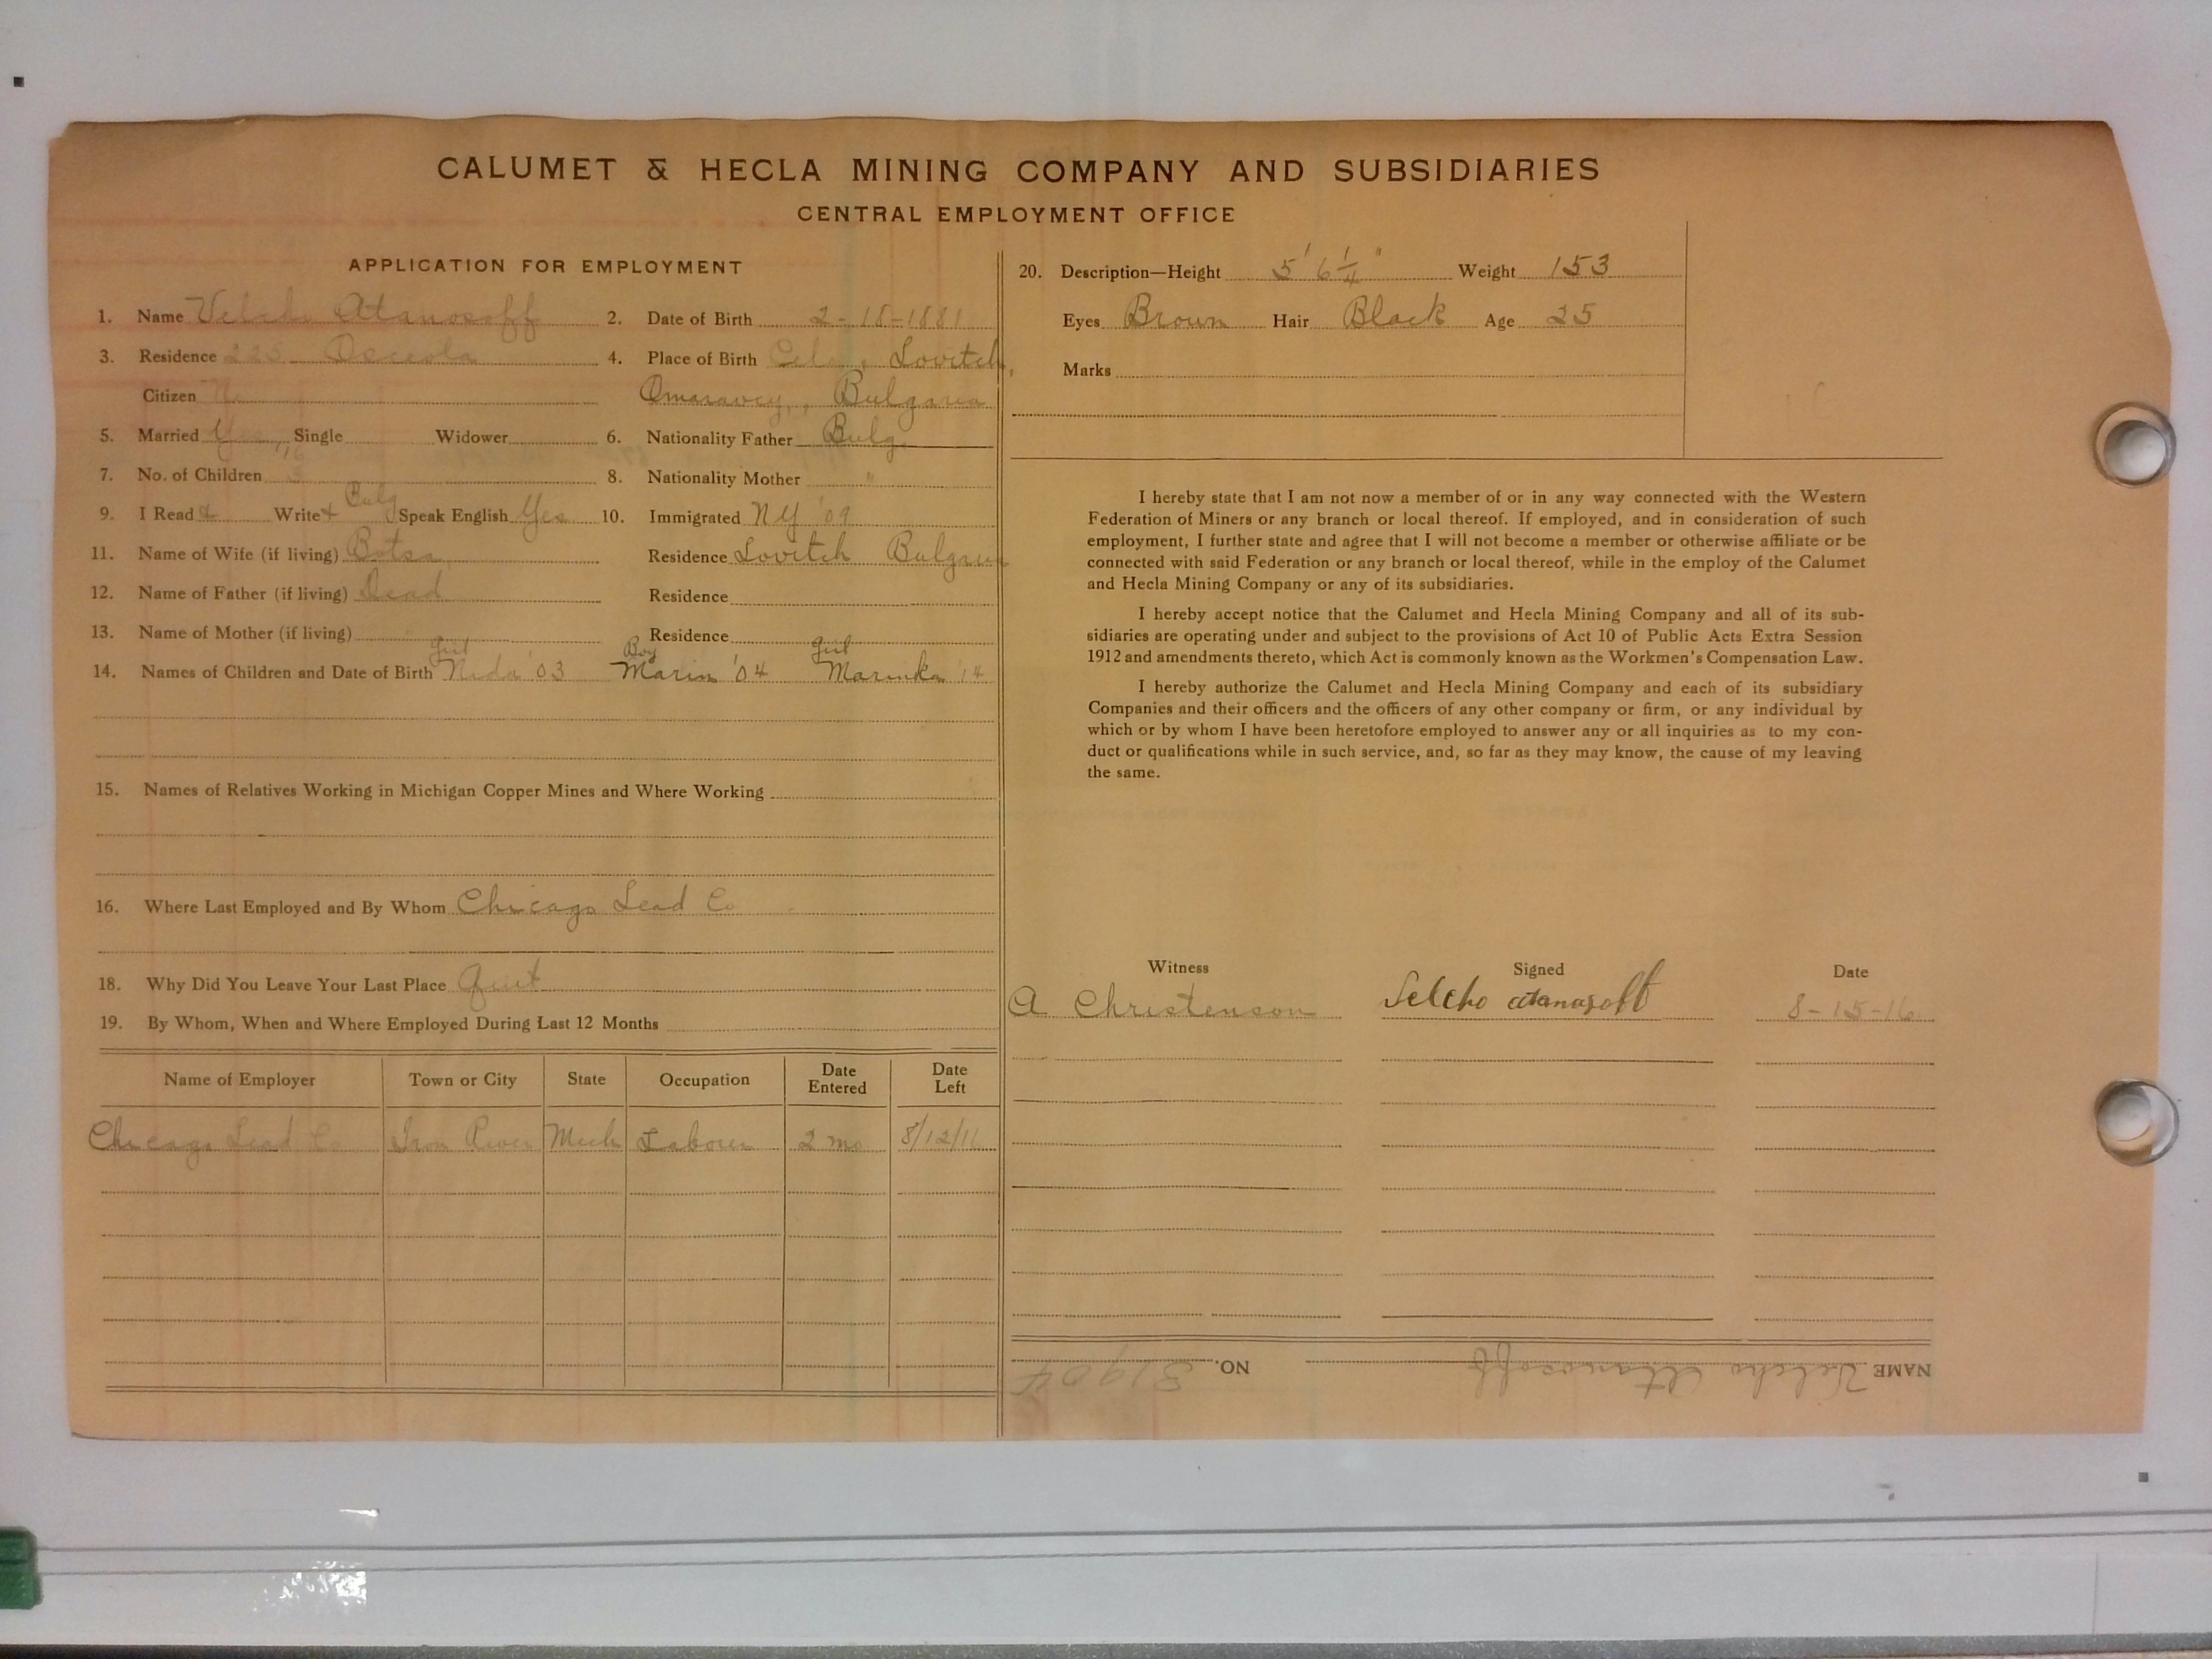 CALUMET & HECLA MINING COMPANY AND SUBSIDIARIES
CENTRAL EMPLOYMENT OFFICE
APPLICATION FOR EMPLOYMENT
1. Name Velcho Atanosoff 2. Date of Birth 2-18-1881
3. Residence Osceola 4. Place of Birth Lovitch,
Citizen No Bulgaria
5. Married Yes Single Widower 6. Nationality Father Bulg.
7. No. of Children 3 8. Nationality Mother "
Bulg
9. I Read & Write + Speak English Yes 10. Immigrated NY '09
11. Name of Wife (if living) Botsa Residence Lovitch Bulgaria
12. Name of Father (if living) Dead Residence
13. Name of Mother (if living) Residence
Girl Boy Girl
14. Names of Children and Date of Birth Neda '03 Marin '04 Marinka '14
15. Names of Relatives Working in Michigan Copper Mines and Where Working
16. Where Last Employed and By Whom Chicago Lead Co
18. Why Did You Leave Your Last Place Quit
19. By Whom, When and Where Employed During Last 12 Months
Name of Employer Town or City State Occupation Date Entered Date Left
Chicago Lead Co Iron River Mich Laborer 2 mo 8/12/16
20. Description—Height 5' 6 1/4" Weight 153
Eyes Brown Hair Black Age 35
Marks
I hereby state that I am not now a member of or in any way connected with the Western
Federation of Miners or any branch or local thereof. If employed, and in consideration of such
employment, I further state and agree that I will not become a member or otherwise affiliate or be
connected with said Federation or any branch or local thereof, while in the employ of the Calumet
and Hecla Mining Company or any of its subsidiaries.
I hereby accept notice that the Calumet and Hecla Mining Company and all of its sub-
sidiaries are operating under and subject to the provisions of Act 10 of Public Acts Extra Session
1912 and amendments thereto, which Act is commonly known as the Workmen's Compensation Law.
I hereby authorize the Calumet and Hecla Mining Company and each of its subsidiary
Companies and their officers and the officers of any other company or firm, or any individual by
which or by whom I have been heretofore employed to answer any or all inquiries as to my con-
duct or qualifications while in such service, and, so far as they may know, the cause of my leaving
the same.
Witness Signed Date
A Christenson Velcho atanasoff 8-15-16
NAME Velcho Atanosoff NO. 31904